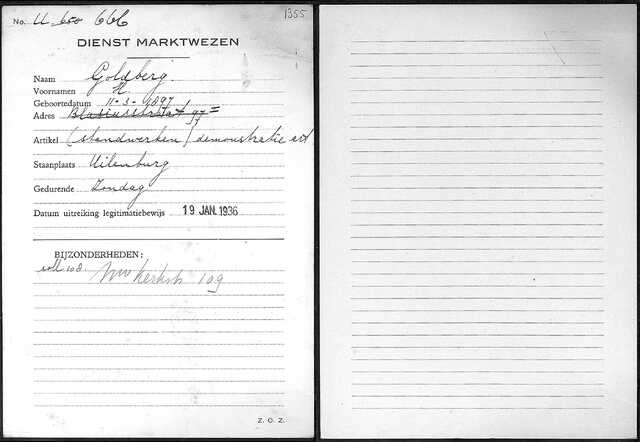 1355
No. U 650 666
DIENST MARKTWEZEN
Naam Goldberg.
Voornamen H.
Geboortedatum 11-3-1897
Adres Blasiusstraat 97
Artikel (standwerken) demonstratie art
Staanplaats Uilenburg
Gedurende Zondag
Datum uitreiking legitimatiebewijs 19 JAN. 1936
BIJZONDERHEDEN:
Kerkstr 109
Z. O. Z.